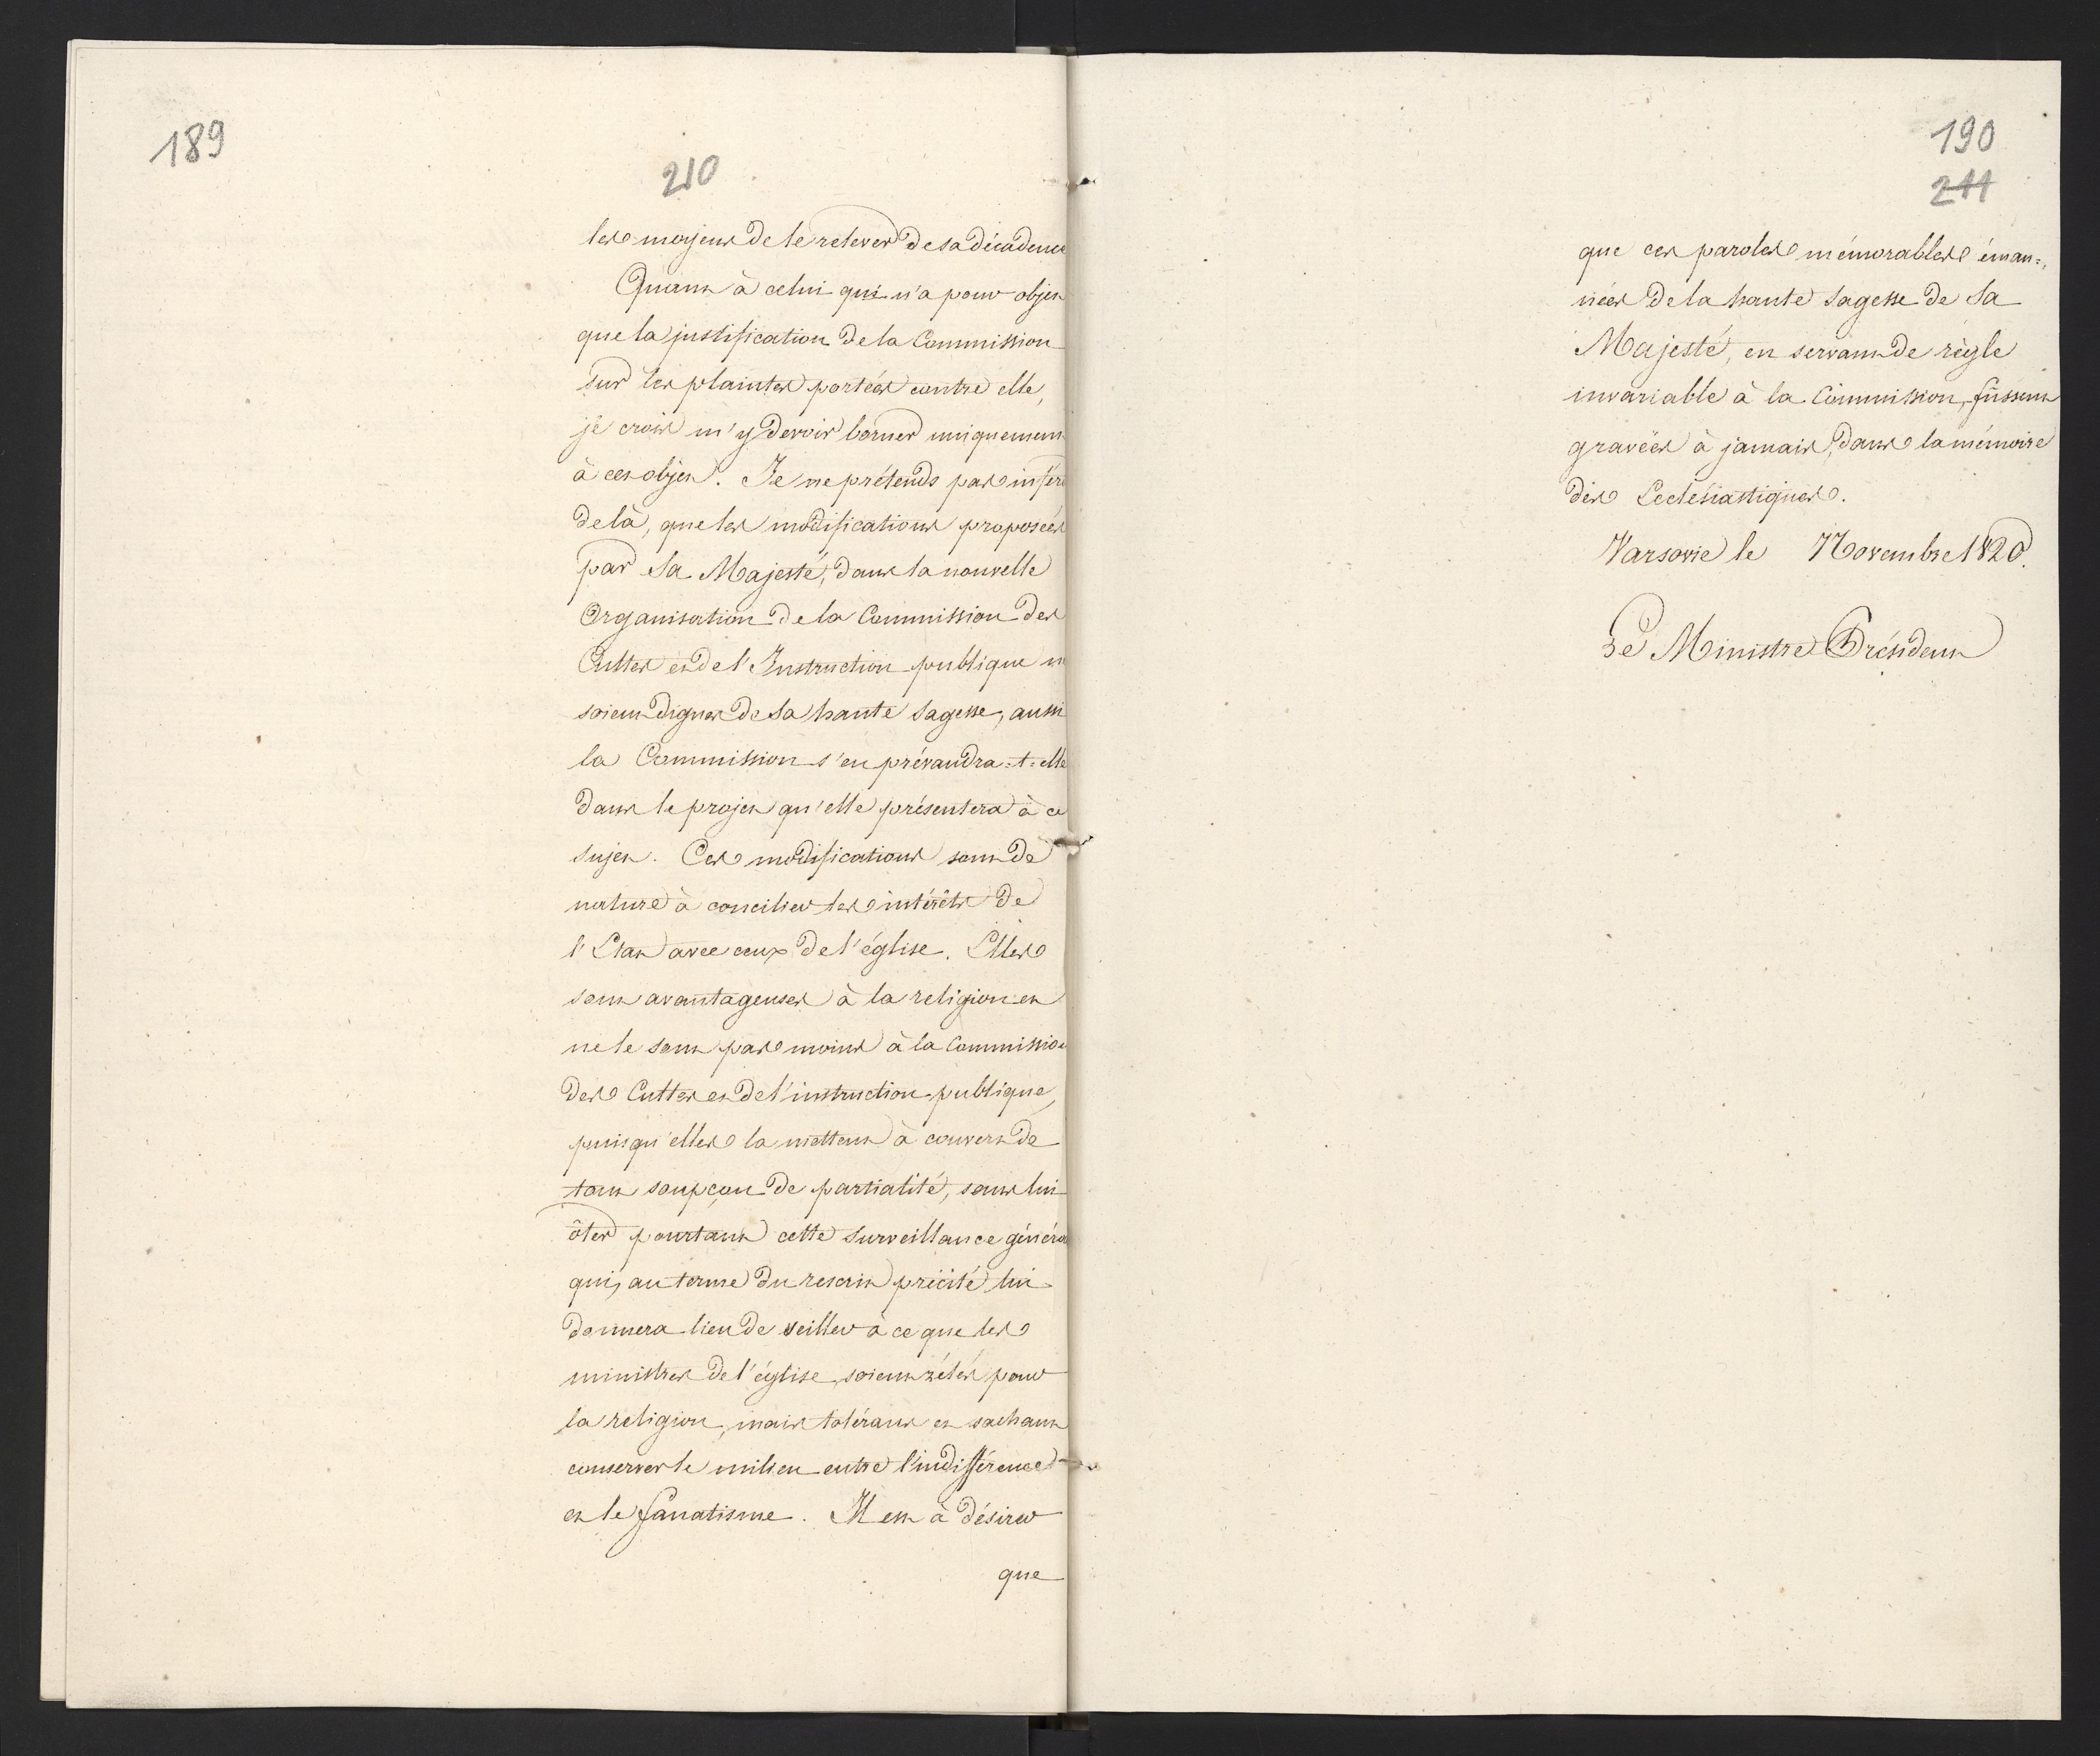 189
210
les moyens de le relever de sa décadence
Quant à celui qui n'a pour objet
que la justification de la Commission
sur les plaintes portées contre elle,
je crois m'y devoir borner uniquement
à cet objet. Je ne prétends pas inférer
delà, que les modifications proposées
par Sa Majesté, dans la nouvelle
Organisation de la Commission des
Cultes et de l'Instruction publique ne
soient dignes de Sa haute Sagesse, aussi
la Commission s'en prévaudra-t-elle
dans le projet qu'elle présentera à ce
sujet. Ces modifications sont de
nature à concilier les intérêts de
l'Etat avec ceux de l'église. Elles
sont avantageuses à la religion et
ne le sont pas moins à la Commission
des Cultes et de l'instruction publique,
puisqu'elles la mettent à couvert de
tout soupçon de partialité, sans lui
ôter pourtant cette surveillance généra
qui, au terme du rescrit précité lui
donnera lieu de veiller à ce que les
ministres de l'église, soient zélés pour
la religion, mais tolérans et sachant
conserver le milieu entre l'indifférence
et le fanatisme. Il est à désirer
que
190
211
que ces paroles mémorables éman=
nées de la haute Sagesse de Sa
Majesté, en servant de règle
invariable à la Commission, fussent
gravées à jamais, dans la mémoire
des Ecclésiastiques.
Varsovie le Novembre 1820.
Le Ministre Président